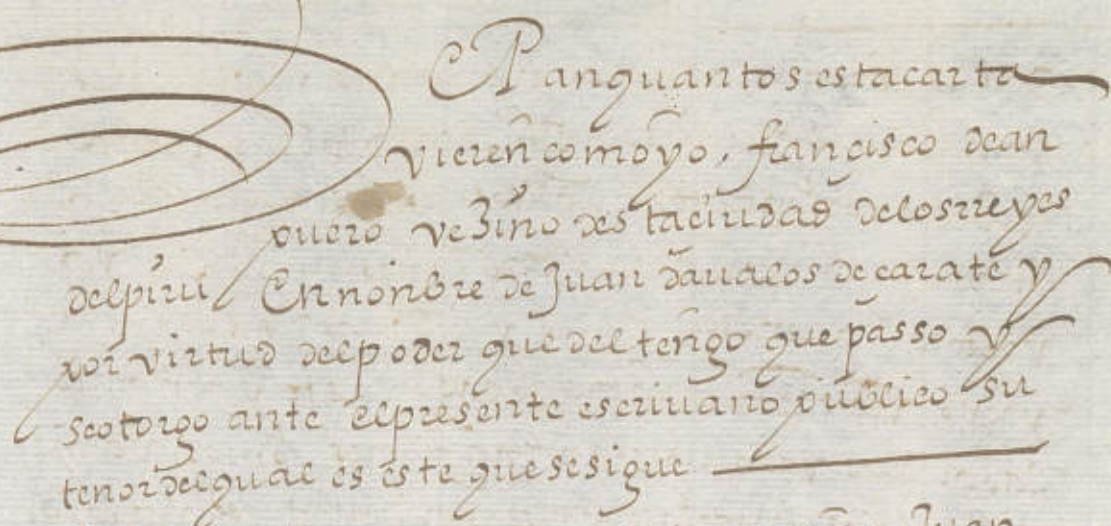 SPan quantos esta carta
vieren como yo, françisco de an
puero vezino desta ciudad de los rreyes
del piru En nonbre de Juan davalos de carate y
por virtud del poder que del tengo que passo y
se otorgo ante el presente escrivano público su
tenor del qual es este que se sigue
Juan